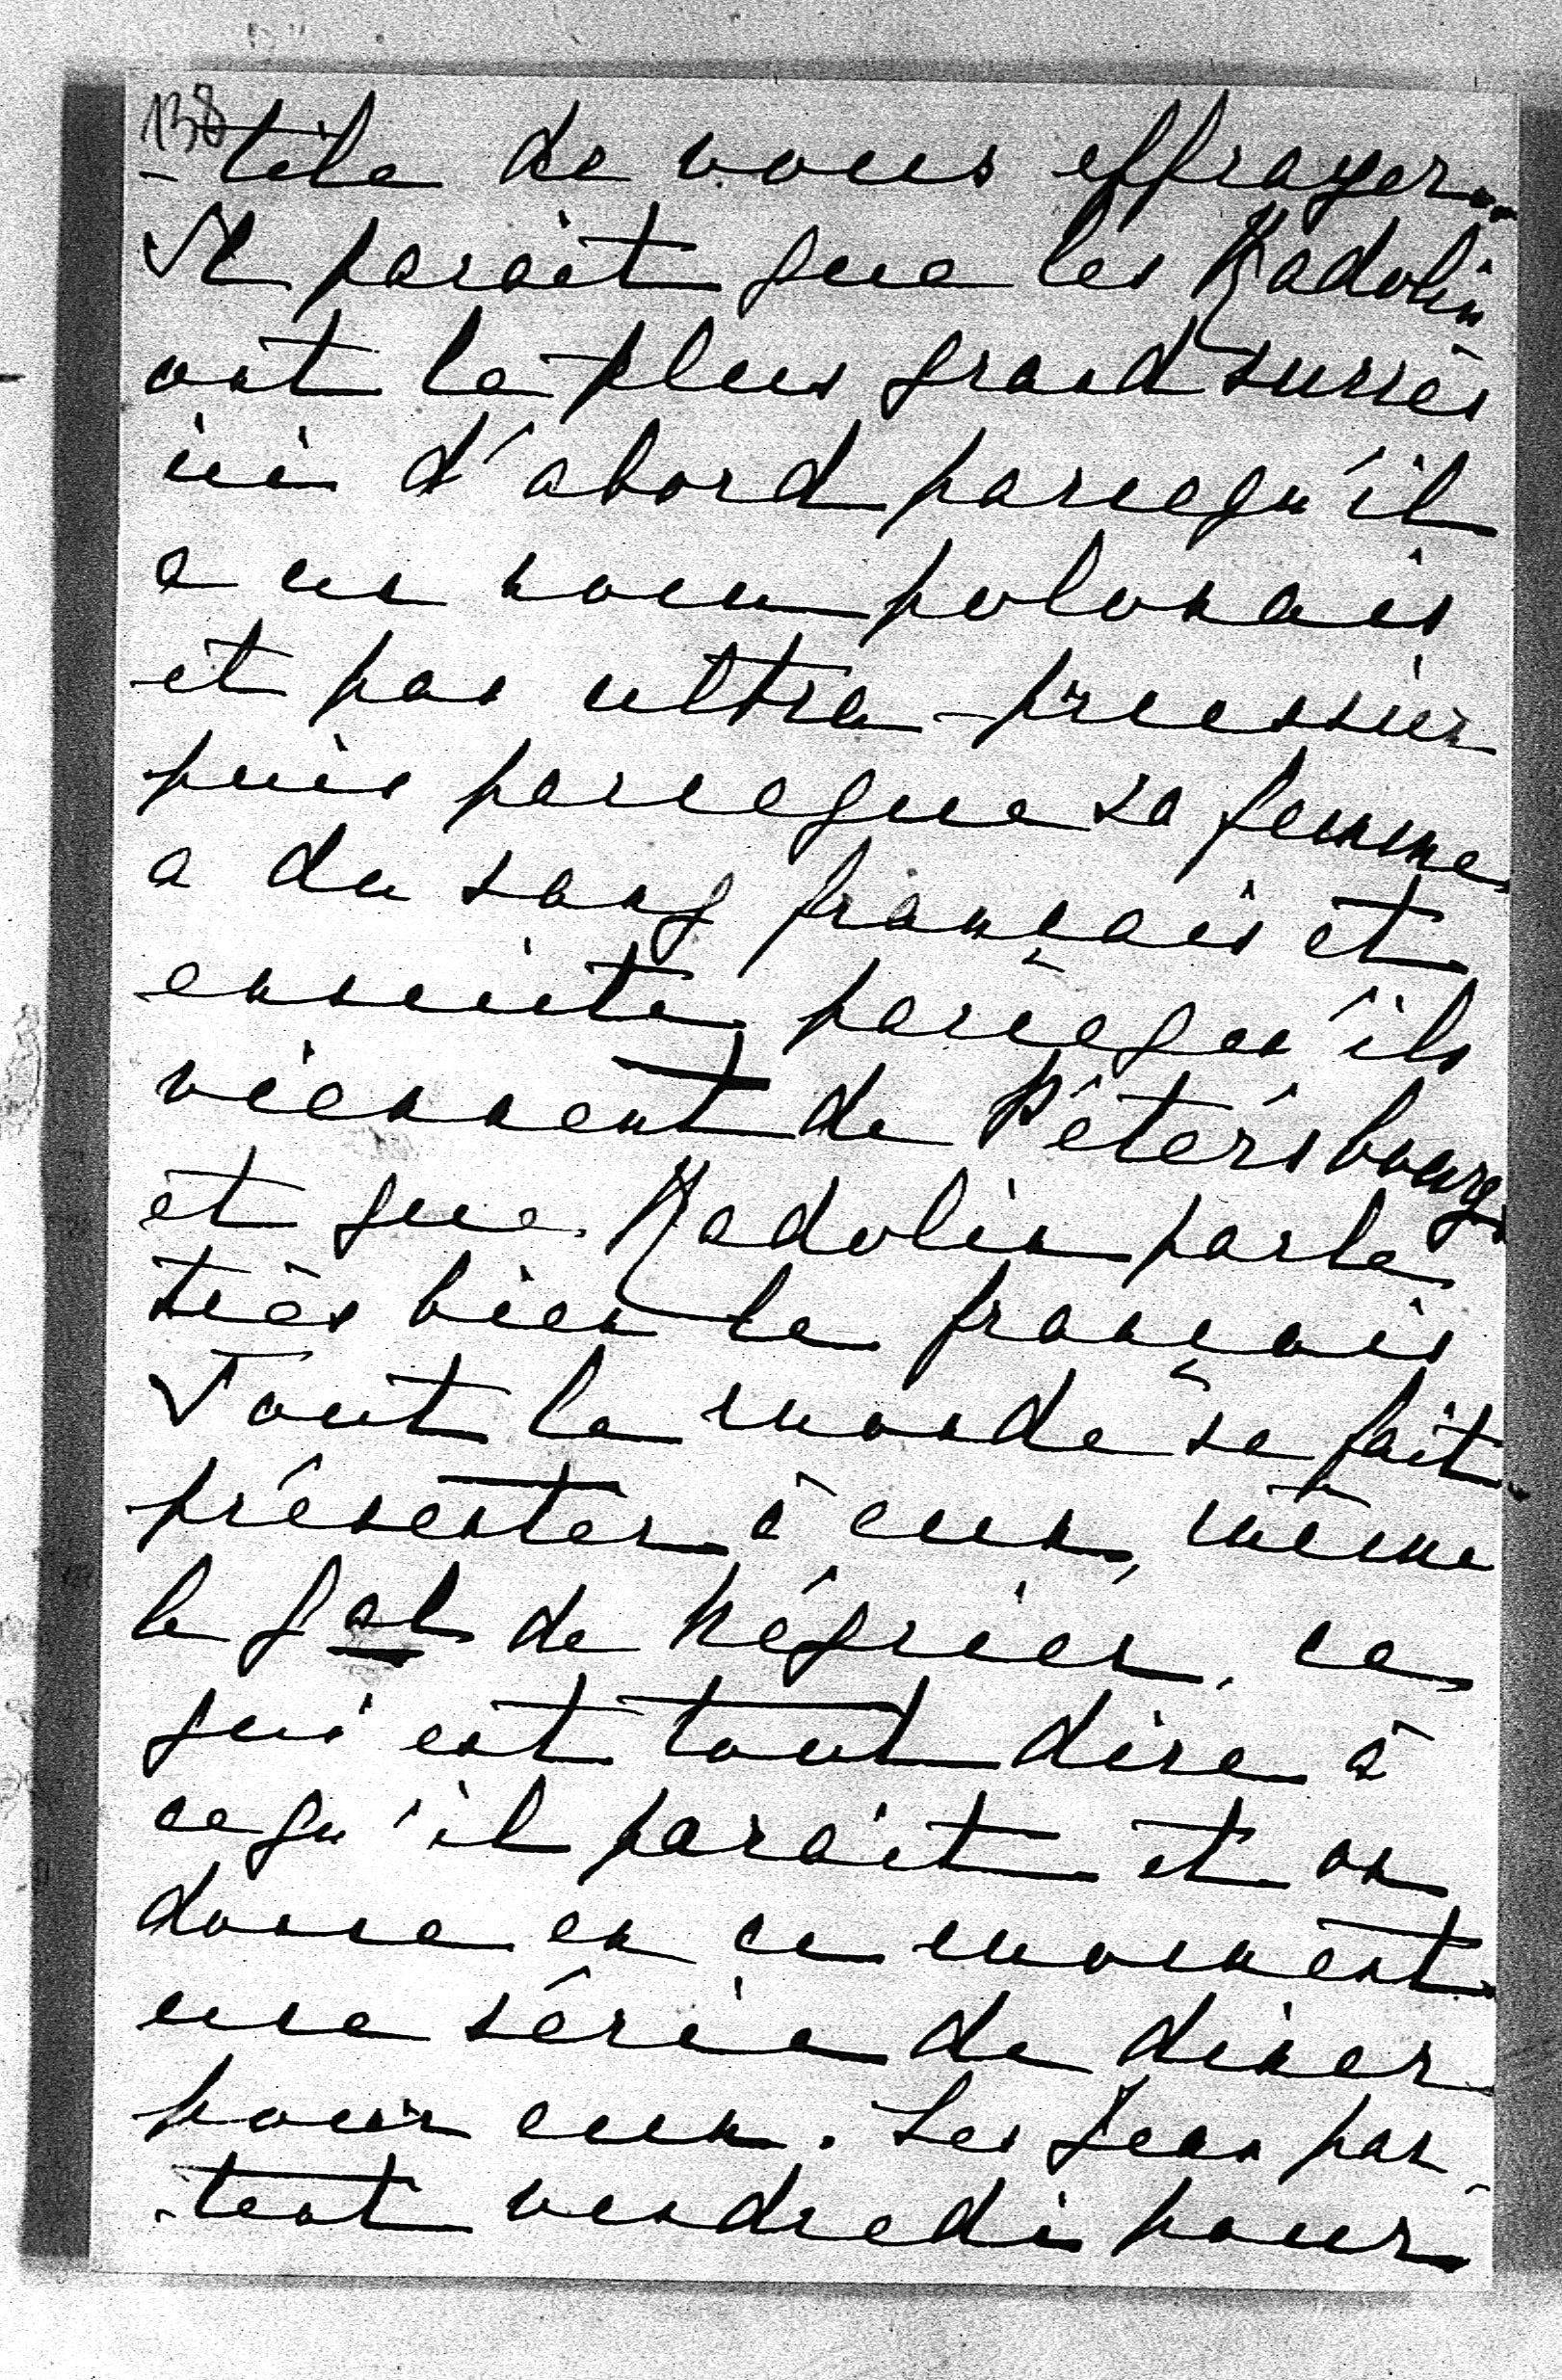 138
-tile de vous effrayer..
Il parait que les Radolin
ont le plus grand succès
ici d'abord parcequ'il
a un nom polonais
et pas ultra-prussien
puis parceque sa femme
a du sang français et
ensuite parcequ'ils
viennent de Pétersbourg
et que Radolin parle
très bien le français
Tout le monde se fait
présenter à eux, même
le gal de Négrier, ce
qui est tout dire à
ce qu'il parait et on
donne en ce moment
une série de diner
pour eux. Les Jean par-
-tent vendredi pour